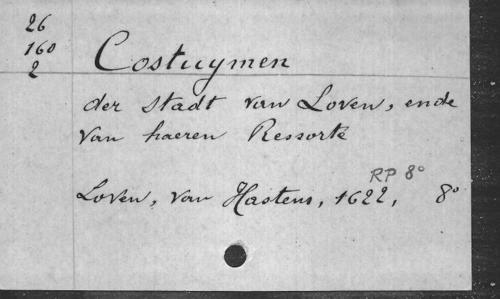 26
160
2
Costuymen
der stadt van Loven, ende
van haeren Ressorte
RP 8°
Loven, van Hastens, 1622, 8°